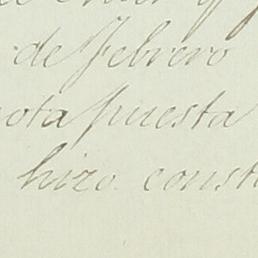 de Febrero
nota puesta
hizo const